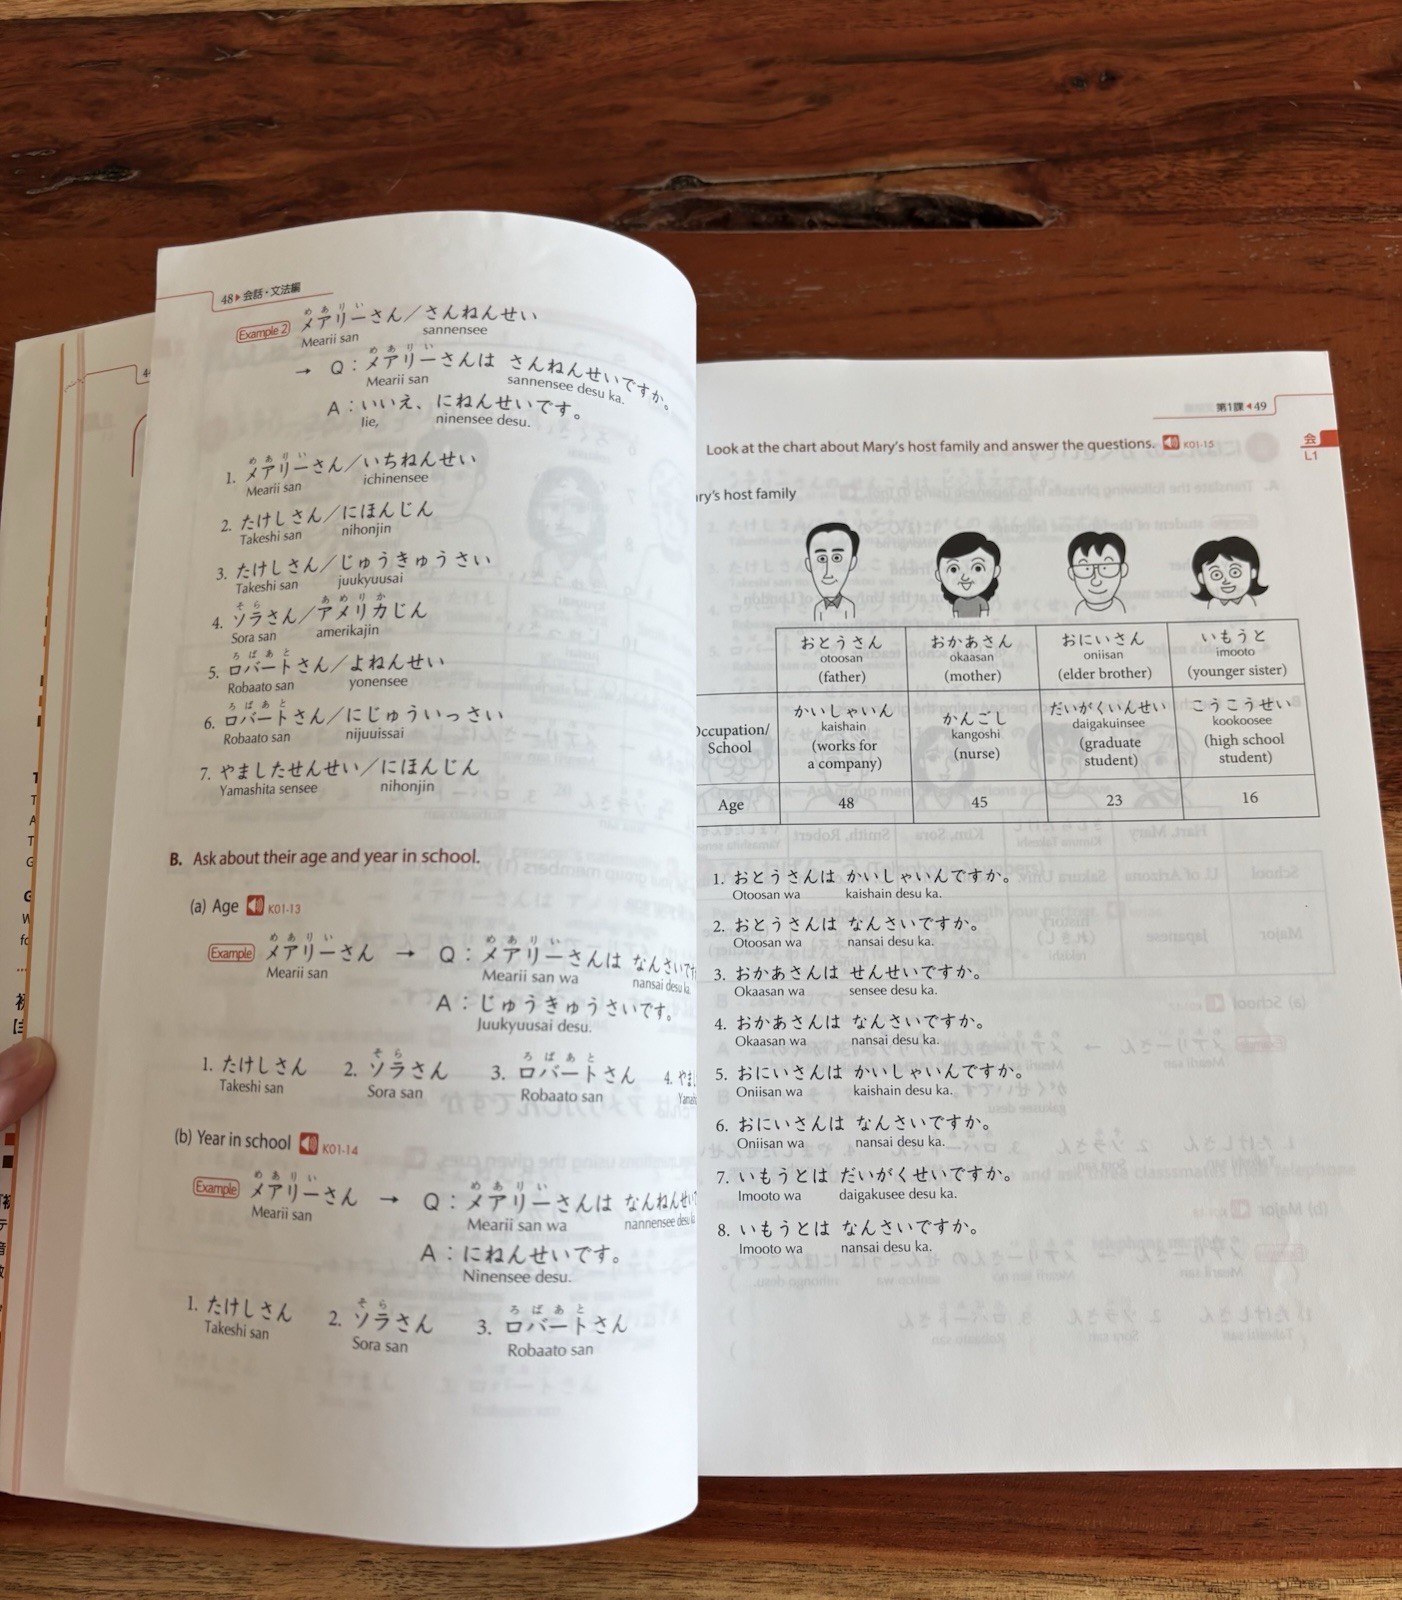 48▶会話・文法編
Example 2 メアリーさん／さんねんせい
めありい
Mearii san sannensee
→ Q：メアリーさんは さんねんせいですか。
めありい
Mearii san sannensee desu ka.
A：いいえ、にねんせいです。
Iie, ninensee desu.
1. メアリーさん／いちねんせい
めありい
Mearii san ichinensee
2. たけしさん／にほんじん
Takeshi san nihonjin
3. たけしさん／じゅうきゅうさい
Takeshi san juukyuusai
4. ソラさん／アメリカじん
そら あめりか
Sora san amerikajin
5. ロバートさん／よねんせい
ろばあと
Robaato san yonensee
6. ロバートさん／にじゅういっさい
ろばあと
Robaato san nijuuissai
7. やましたせんせい／にほんじん
Yamashita sensee nihonjin
B. Ask about their age and year in school.
(a) Age K01-13
Example メアリーさん → Q：メアリーさんは なんさいで
めありい めありい
Mearii san Mearii san wa nansai desu ka.
A：じゅうきゅうさいです。
Juukyuusai desu.
1. たけしさん 2. ソラさん 3. ロバートさん 4. やま
そら ろばあと
Takeshi san Sora san Robaato san
(b) Year in school K01-14
Example メアリーさん → Q：メアリーさんは なんねんせい
めありい めありい
Mearii san Mearii san wa nannensee desu
A：にねんせいです。
Ninensee desu.
1. たけしさん 2. ソラさん 3. ロバートさん
そら ろばあと
Takeshi san Sora san Robaato san
第1課◀49
会
L1
Look at the chart about Mary's host family and answer the questions. K01-15
ry's host family
おとうさん おかあさん おにいさん いもうと
otoosan okaasan oniisan imooto
(father) (mother) (elder brother) (younger sister)
Occupation/School かいしゃいん かんごし だいがくいんせい こうこうせい
kaishain kangoshi daigakuinsee kookoosee
(works for a company) (nurse) (graduate student) (high school student)
Age 48 45 23 16
1. おとうさんは かいしゃいんですか。
Otoosan wa kaishain desu ka.
2. おとうさんは なんさいですか。
Otoosan wa nansai desu ka.
3. おかあさんは せんせいですか。
Okaasan wa sensee desu ka.
4. おかあさんは なんさいですか。
Okaasan wa nansai desu ka.
5. おにいさんは かいしゃいんですか。
Oniisan wa kaishain desu ka.
6. おにいさんは なんさいですか。
Oniisan wa nansai desu ka.
7. いもうとは だいがくせいですか。
Imooto wa daigakusee desu ka.
8. いもうとは なんさいですか。
Imooto wa nansai desu ka.